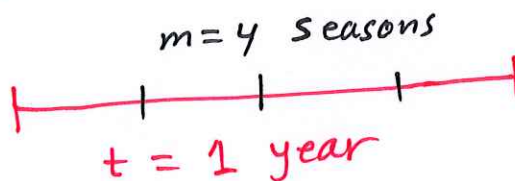 m = 4 seasons
t = 1 year